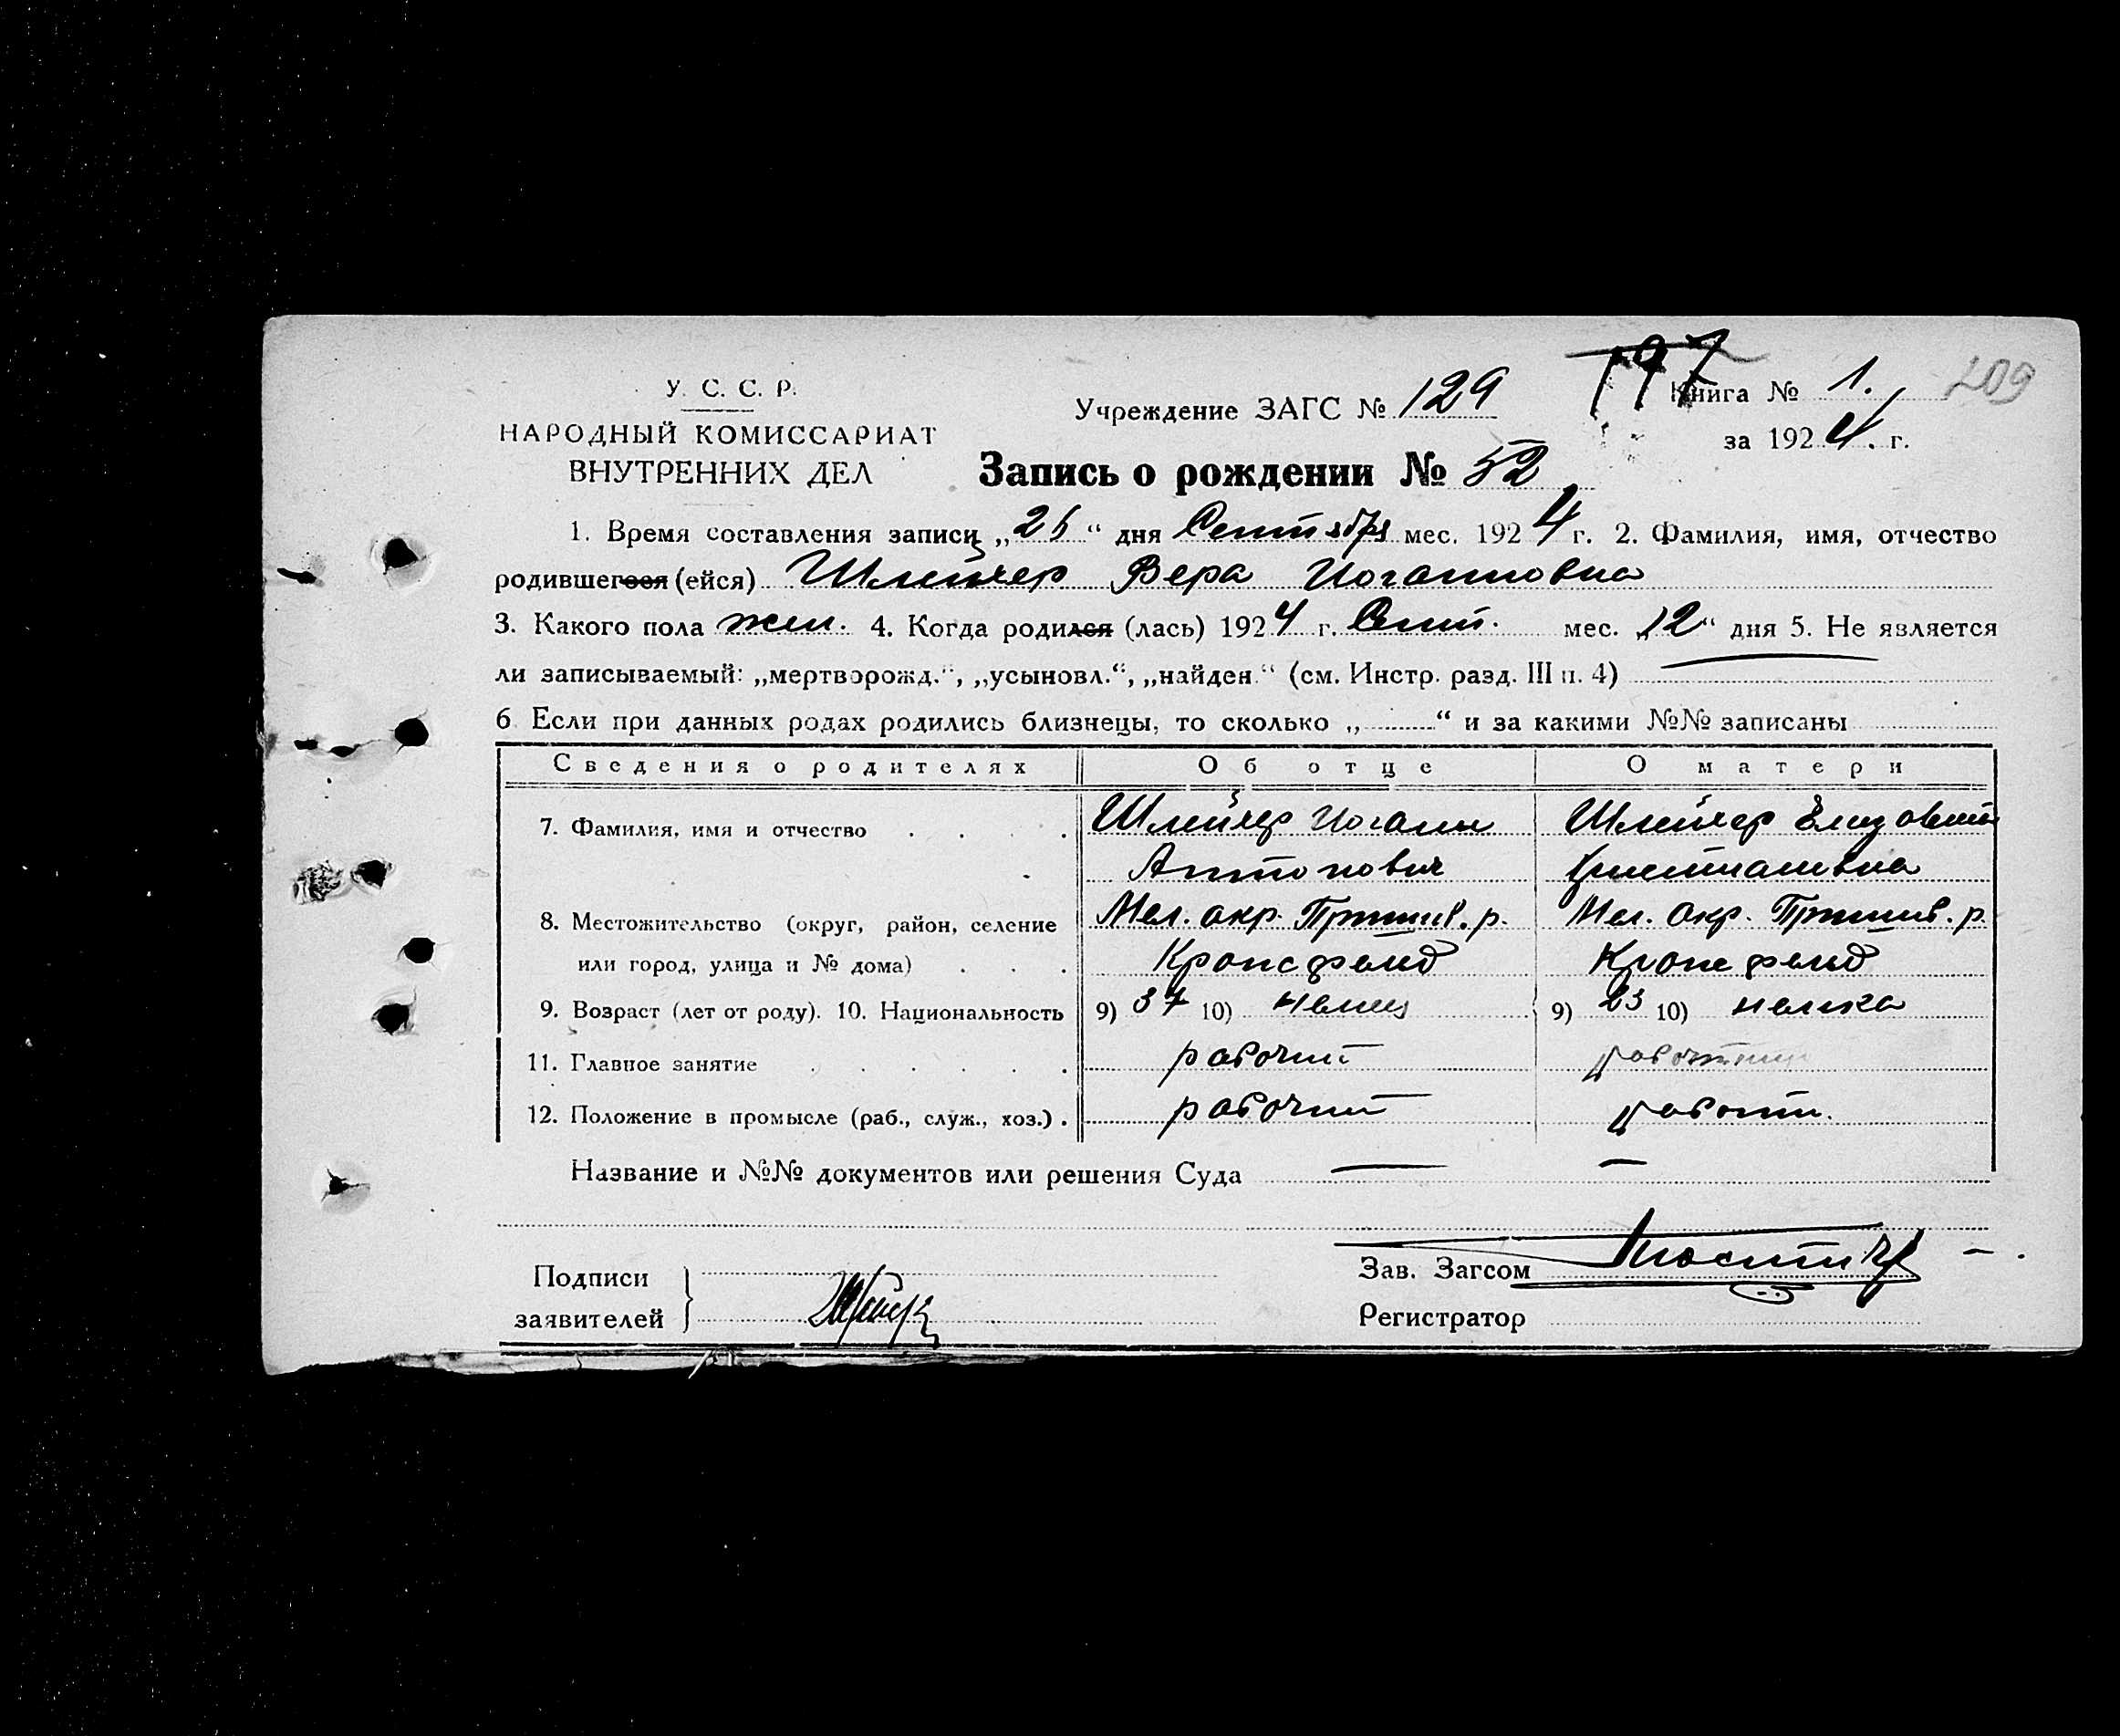 У. С. С. Р.
НАРОДНЫЙ КОМИССАРИАТ
ВНУТРЕННИХ ДЕЛ
Учреждение ЗАГС № 129
Книга № 1.
209
за 1924. г.
Запись о рождении № 52
1. Время составления записи „ “ дня Сентября мес. 1924 г. 2. Фамилия, имя, отчество
родившегося (ейся) Шлейхер Вера Иогановна
3. Какого пола жен. 4. Когда родился (лась) 1924 г. Сент. мес. „12“ дня 5. Не является
ли записываемый: „мертворожд.“, „усыновл.“, „найден.“ (см. Инстр. разд. III п. 4)
6. Если при данных родах родились близнецы, то сколько „ “ и за какими №№ записаны
Сведения о родителях Об отце О матери
7. Фамилия, имя и отчество Шлейхер Иоганн Шлейхер Елизавета
Антонович Христиановна
8. Местожительство (округ, район, селение Мел. окр. Пришиб. р. Мел. Окр. Пришиб. р.
или город, улица и № дома) Кронсфельд Кронсфельд
9. Возраст (лет от роду). 10. Национальность 9) 37 10) немец 9) 23 10) немка
11. Главное занятие рабочий
12. Положение в промысле (раб., служ., хоз.) рабочий работн.
Название и №№ документов или решения Суда — —
Подписи
заявителей
Зав. Загсом
Регистратор